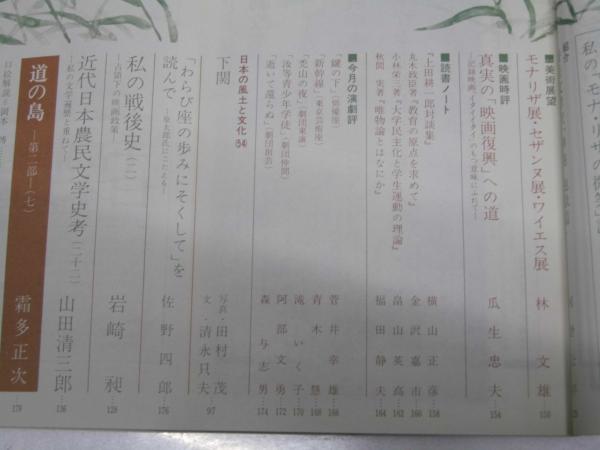 ■美術展望
モナリザ展・セザンヌ展・ワイエス展 林 文雄 150
■映画時評
真実の「映画復興」への道 瓜生忠夫 154
―記録映画『イタイイタイ』のもつ意味にふれて―
■読書ノート
『上田耕一郎対談集』 横山正彦 158
丸木政臣著『教育の原点を求めて』 金沢嘉市 160
小林栄三著『大学民主化と学生運動の理論』 畠山英高 162
秋間 実著『唯物論とはなにか』 福田静夫 164
■今月の演劇評
「鍵の下」(俳優座) 菅井幸雄 166
「新幹線」(東京芸術座) 青木 慧 168
「禿山の夜」(劇団東演) 滝いく子 170
「汝等青少年学徒」(劇団仲間) 阿部文勇 172
「逝いて還らぬ」(劇団河芸) 森 与志男 174
日本の風土と文化(54)
下関 写真・田村 茂 文・清水只夫 97
「わらび座の歩みにそくして」を
読んで ―泉太郎氏にこたえる― 佐野四郎 176
私の戦後史(二) 岩崎 昶 128
―占領下の映画政策―
近代日本農民文学史考(二十二) 山田清三郎 136
―私の文学遍歴と重ねて―
道の島 ―第二部―(七) 霜多正次 179